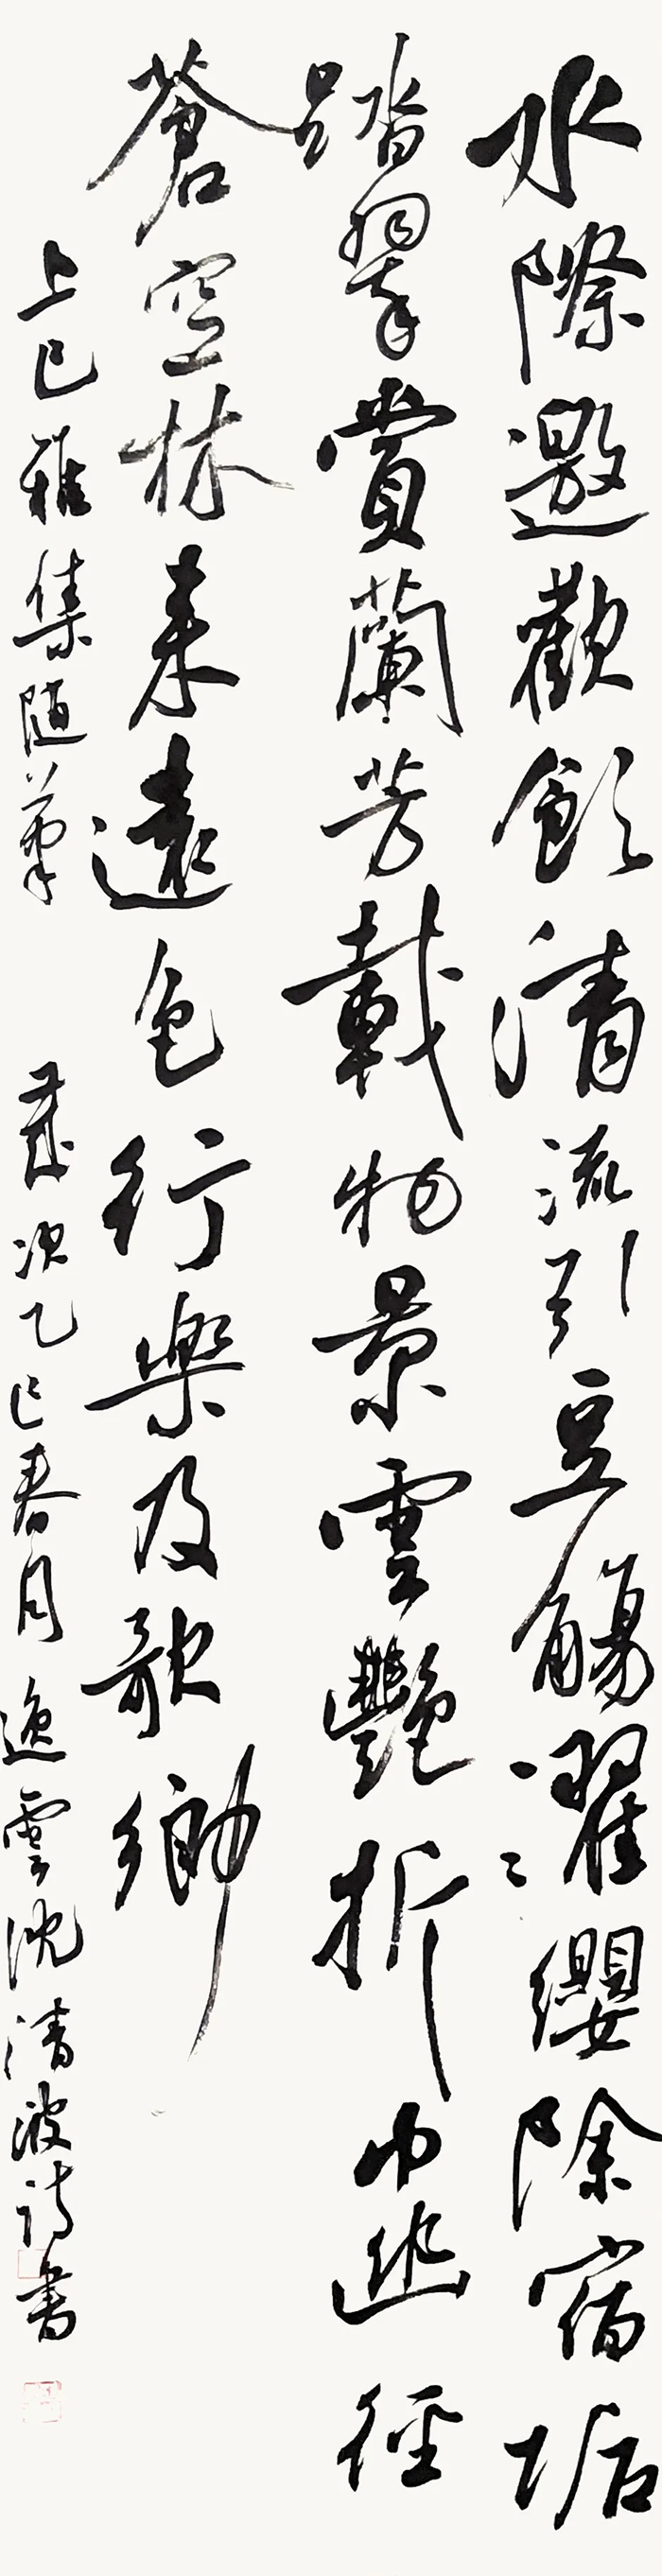 水際邀歡飲清流引豆觴濯纓除宿垢
踏翠賞蘭芳載物景雲艷折巾幽徑
蒼空林来遠色行樂及歌鄉
上巳雅集随筆 歲次乙巳春月逸雲沈清波詩書